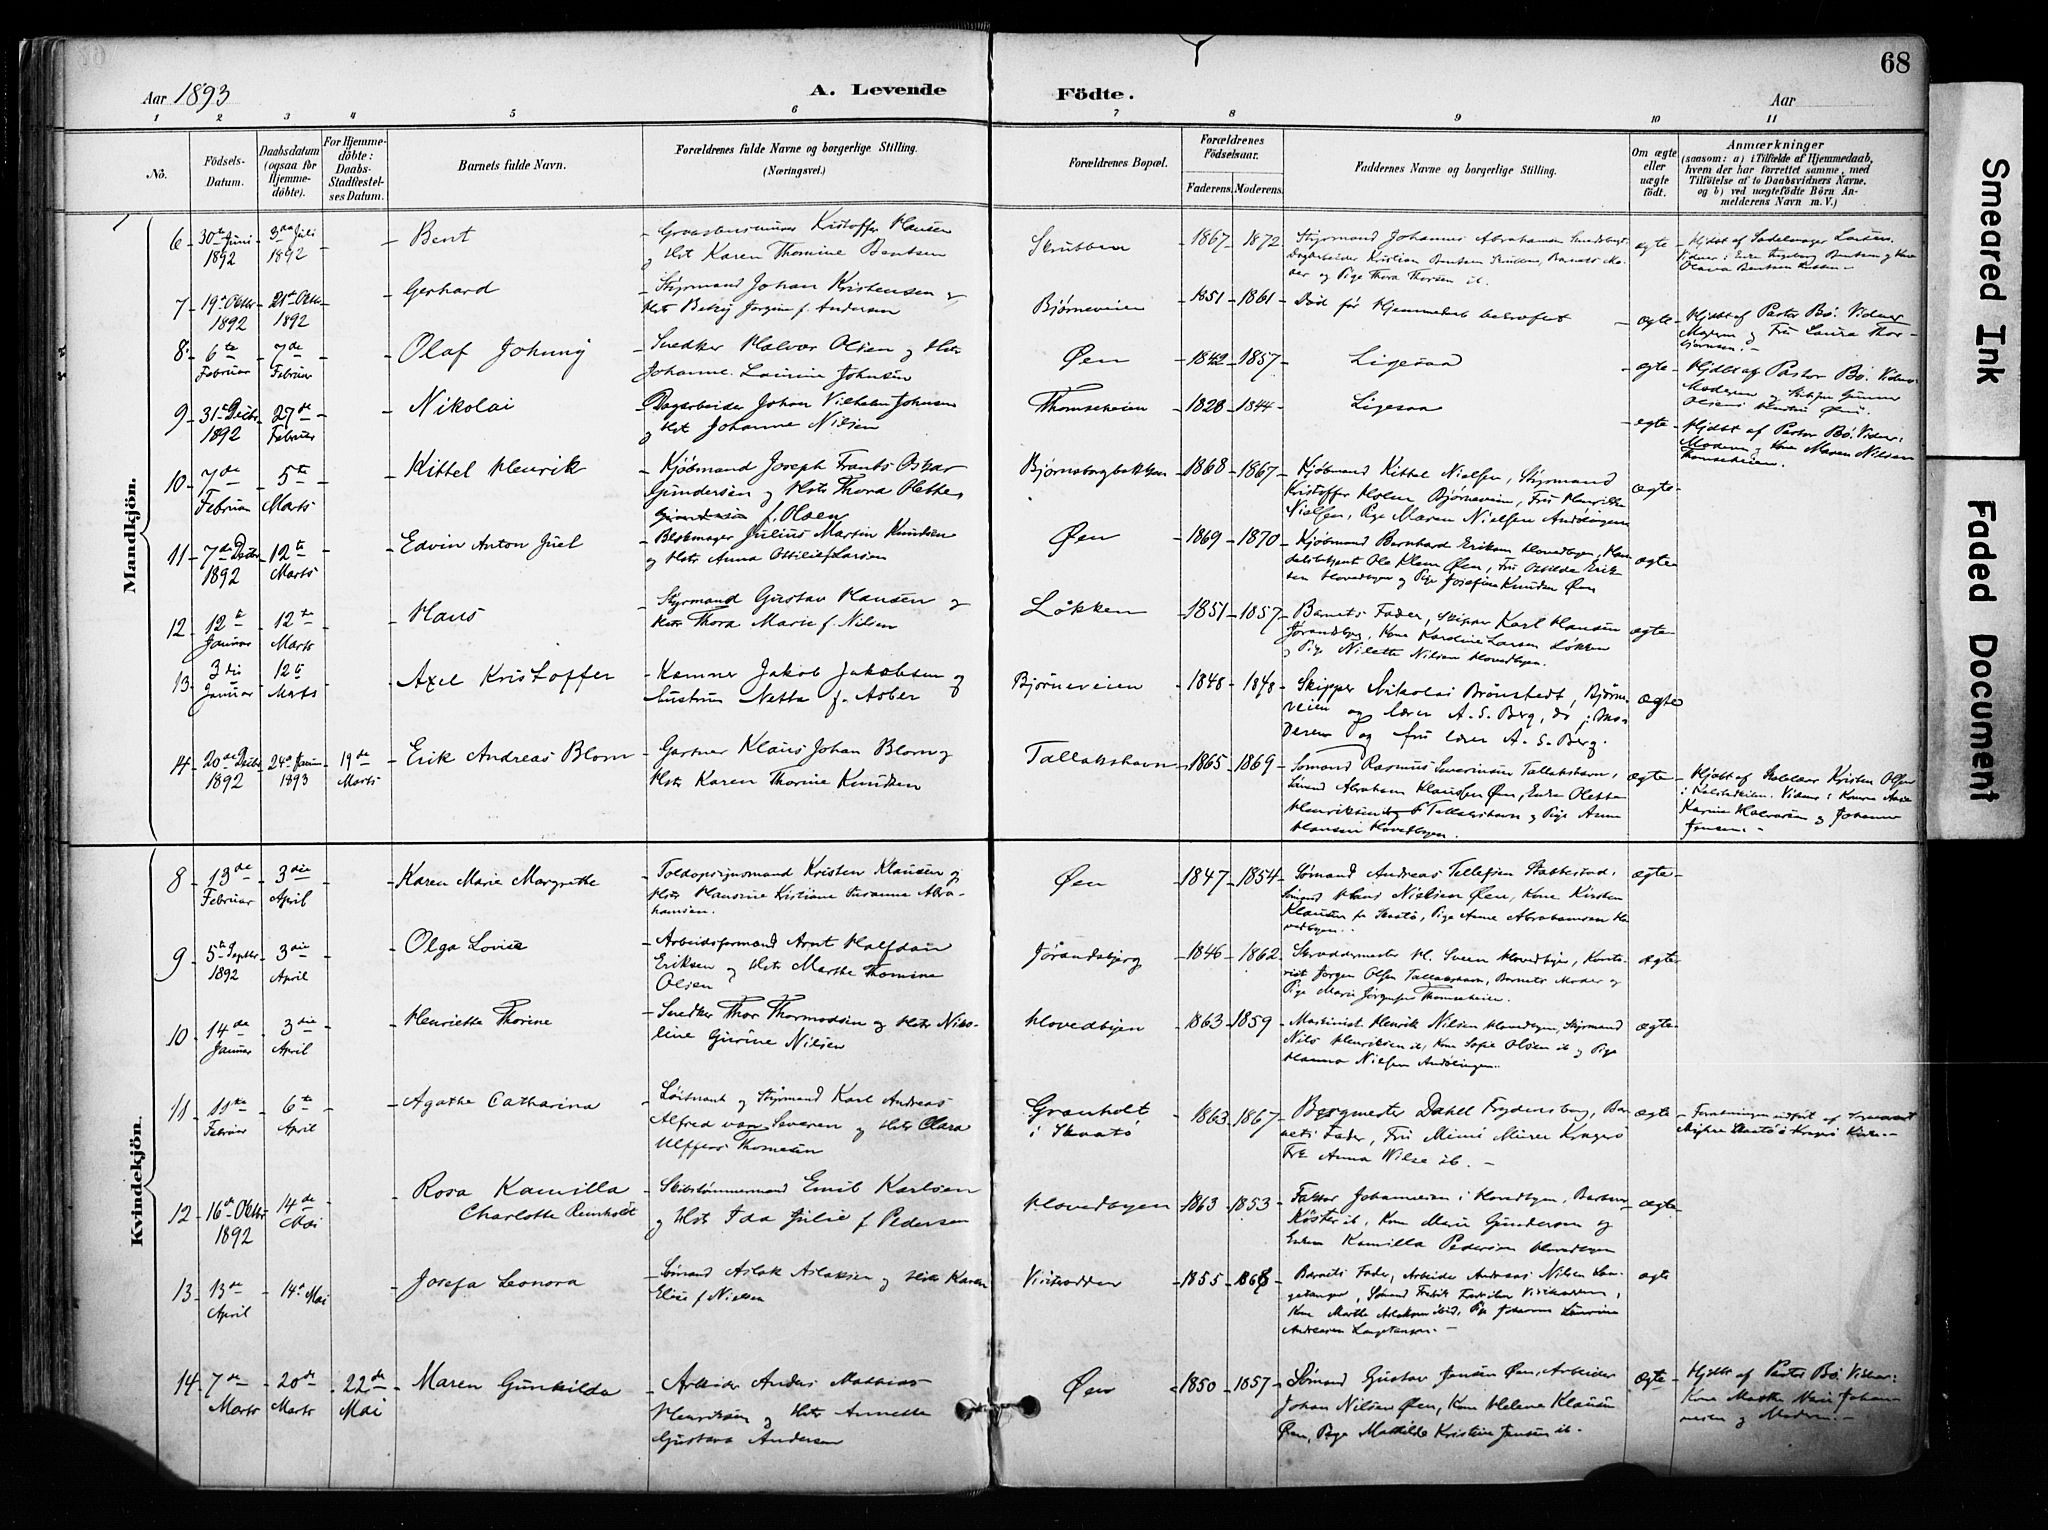 68
Aar 1893
A. Levende
Födte.
Aar
1 2 3 4 5 6 7 8 9 10 11
No.
Födsels-
Datum.
Daabsdatum
(ogsaa for
Hjemme-
döbte).
For Hjemme-
döbte:
Daabs-
Stadfestel-
ses Datum.
Barnets fulde Navn.
Forældrenes fulde Navne og borgerlige Stilling.
(Næringsvei.)
Forældrenes Bopæl.
Forældrenes
Födselsaar.
Faderens. Moderens.
Faddernes Navne og borgerlige Stilling.
Om ægte
eller
uægte
födt.
Anmærkninger
(saasom: a) i Tilfælde af Hjemmedaab,
hvem der har forrettet samme, med
Tilföielse af to Daabsvidners Navne,
og b) ved uægtefödte Börn An-
melderens Navn m. V.)
Mandkjön.
6 30te Juni 1892 3die Juli 1892 Bent
Kristoffer Hansen
og Hst Karen Thomine Bentsen
Skrubben 1867 1872
Styrmand Johannes Abrahamsen
Dagarbeider Kristian Bentsen
og Pige Thora Thorsen ib.
ægte
7 19de Oktbr 1892 21de Oktbr 1892 Gerhard
Styrmand Johan Kristensen og
Hst Betsy Jorgine f. Andersen
Bjørneveien 1851 1861
Død før Hjemmedaab bekræftet
ægte
Hjdbt af Pastor Bø. Vidner
Moderen og Fru Laura Thor-
bjørnsen.
8 6te Februar 7de Februar Olaf Johnny
Snedker Halvor Olsen og Hst
Johanne Laurine Johnsen
Øen 1842 1857
Ligesaa
ægte
Hjdbt af Pastor Bø. Vidner
Moderen og
9 31te Decbr 1892 27de Februar Nikolai
Dagarbeider Johan Vilhelm Johnsen
og Hst Johanne Nilsen
Thomseheien 1828 1844
Ligesaa
ægte
Hjdbt af Pastor Bø. Vidner:
Moderen og Kone Maren Nilsen
Thomseheien.
10 7de Februar 5te Marts Kittel Henrik
Kjøbmand Joseph Frants Oskar
Gundersen og Hst Thora Olette
f. Olsen
Bjørnsborgbakken 1868 1867
Kjøbmand Kittel Nielsen, Styrmand
Kristoffer Holen Bjørneveien, Fru Henrikke
Nielsen, Pige Maren Nielsen Andøingen
ægte
11 7de Decbr 1892 12te Marts Edvin Anton Juel
Blokmager Julius Martin Knudsen
og Hst Anna Ottilie f. Larsen
Øen 1869 1870
Kjøbmand Bernhard Eriksen Hovedbyen, Han-
delsbetjent Ole Klem Øen, Fru Otilde Erik-
sen Hovedbyen og Pige Josefine Knudsen Øen
ægte
12 12te Januar 12te Marts Hans
Styrmand Gustav Hansen og
Hst Thora Marie f. Nilsen
Løkken 1851 1857
Barnets Fader, Skipper Karl Hansen
Jørandsbjerg, Kone Karoline Larsen Løkken
og Pige Nilette Nilsen Hovedbyen.
ægte
13 3die Januar 12te Marts Axel Kristoffer
Kemner Jakob Jakobsen og
Hustru Netta f. Asber
Bjørneveien 1848 1848
Skipper Nikolai Brønstedt, Bjørne-
veien og lærer A. S. Berg, ds; Mo-
deren og fru lærer A. S. Berg.
ægte
14 20de Decbr 1892 24de Januar 1893 19de Marts Erik Andreas Blom
Gartner Klaus Johan Blom og
Hst Karen Thorine Knudsen
Tallakshavn 1865 1869
Sømand Rasmus Severinsen Tallakshavn,
Sømand Abraham Klausen Øen, Enke Olette
Henriksen Tallakshavn og Pige Anne
Hansen Hovedbyen.
ægte
Hjdbt af Skolelær Kristen Olsen
Karine Halvorsen og Johanne
Jensen.
Kvindekjön.
8 13de Februar 3die April Karen Marie Margrethe
Toldopsynsmand Kristen Klausen og
Hst Hansine Kistiane Susanne Abra-
hamsen.
Øen 1847 1854
Sømand Andreas Tellefsen Stabbestad,
Sømand Hans Nielsen Øen, Kone Kirsten
Klausen fr Skaatø, Pige Anne Abrahamsen Ho-
vedbyen.
ægte
9 5te Septbr 1892 3die April Olga Lovise
Arbeidsformand Arnt Halfdan
Eriksen og Hst Marthe Thomine
Olsen
Jørandsbjerg 1846 1862
Skræddermester H. Sveen Hovedbyen, Konto-
rist Jørgen Olsen Tallakshavn, Barnets Moder og
Pige Marie Jørgensen Thomseheien.
ægte
10 14de Januar 3die April Henriette Thorine
Snedker Thor Thormodsen og Hst Niko-
line Gurine Nilsen
Hovedbyen 1863 1859
Maskinist Henrik Nilsen Hovedbyen, Styrmand
Nils Henriksen ib, Kone Sofie Olsen ib og Pige
Hanna Nielsen Andøingen.
ægte
11 11te Februar 6te April Agathe Catharina
Løitnant og Styrmand Karl Andreas
Alfred van Severen og Hst Clara
Ulffers Thomesen
Granholt
i Skaatø
1863 1867
Borgmester Dahll Frydensborg, Bar-
nets Fader, Fru Mimi Kragerø
Frk Anna Wilse ib.
ægte
Forretningen udført af
Skaatø i Kragerø Kirke.
12 16de Oktbr 1892 14de Mai Rosa Kamilla
Charlotte Reinholdt
Skibstømmermand Emil Karlsen
og Hst Ida Julie f. Pedersen
Hovedbyen 1863 1853
Faktor Johannesen i Hovedbyen,
Køster ib, Kone Marie Gundersen og
Enken Kamilla Pedersen Hovedbyen
ægte
13 13de April 14de Mai Josefa Leonora
Sømand Aslak Aslaksen og Hst Karen
Elise f. Nielsen
1855 1868
Barnets Fader, Arbeider Andreas Nilsen Lan-
getangen, Sømand
Kone Marthe Aslaksen ibid, Pige Johanne Laurine
Andreasen Langetangen.
ægte
14 7de Marts 20de Marts 22de Mai Maren Gunhilda
Arbeider Anders Mathias
Henriksen og Hst Annette
Gustava Andersen
Øen 1850 1857
Sømand Gustav Jensen Øen, Arbeider
Johan Nilsen Øen, Kone Helene Klausen
Øen, Pige Mathilde Kristine Jensen ib.
ægte
Hjdbt af Pastor Bø. Vidner:
Kone Marthe Marie Johan-
nesen og Moderen.
Smeared Ink
Faded Document